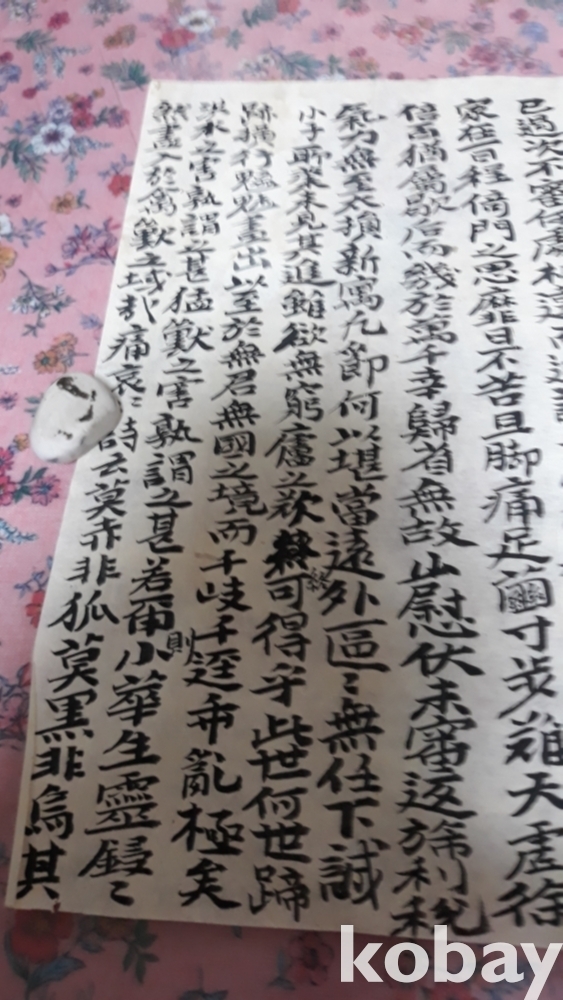 已過次不審任處村
家在百程倚門之思靡日不苦且脚痛足繭寸步難天虛徐
倍百猶屬歇后而幾於萬千幸歸省無故山慰伏未審返旆利稅
氣力無至太損新寓凡節何以堪當遠外區〻無任下誠
小子所求未見其進雖欲無窮廬之歎終可得乎此世何世蹄
跡橫行魑魅晝出以至於無君無國之境而千岐千逕乖亂極矣
洪水之害孰謂之甚猛獸之害孰謂之甚若爾則小華生靈
然盡入於禽獸之域哉痛哀〻詩云莫赤非狐莫黑非烏其
kobay